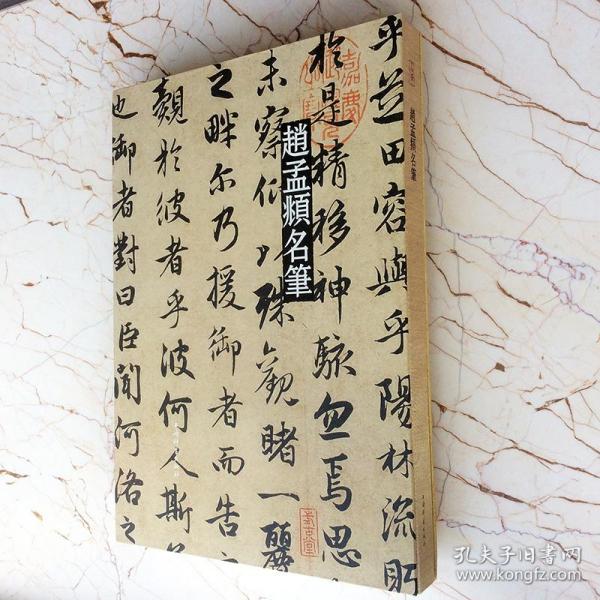 趙孟頫名筆
乎芝田容與乎陽林流眄
於是精移神駭忽焉思
未察仰以殊觀睹一麗
之畔尓乃援御者而告之
覿於彼者乎彼何人斯
也御者對曰臣聞河洛之
嘉慶
趙孟頫名筆
孔夫子旧书网
www.kongfz.com